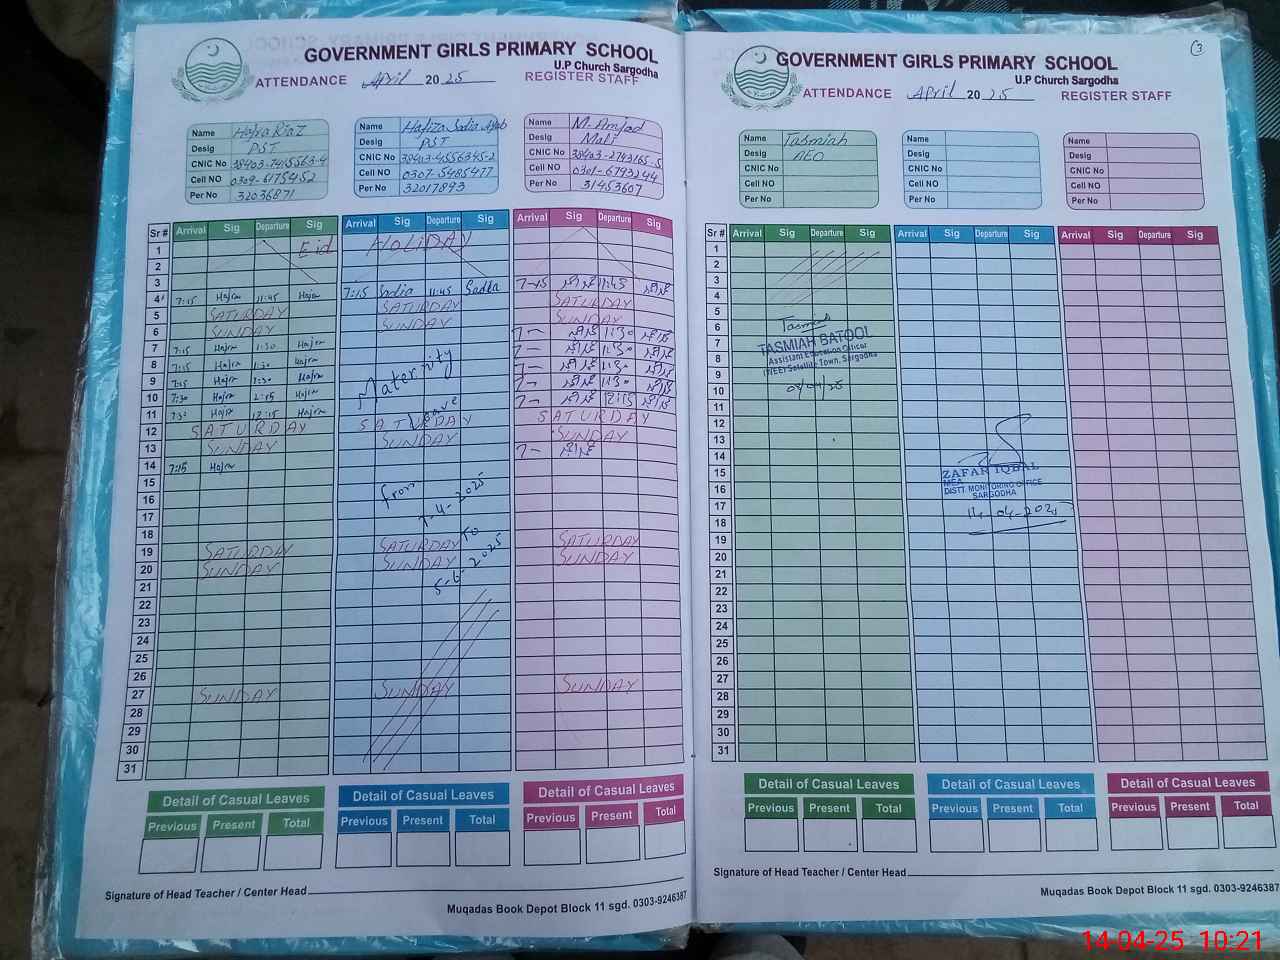 GOVERNMENT GIRLS PRIMARY SCHOOL
U.P Church Sargodha
ATTENDANCE April 2025 REGISTER STAFF
Name Hajra Riaz
Desig PST
CNIC No
Cell NO 0309-6175452
Per No 32036871
Name Hafiza Sadia
Desig PST
CNIC No 38403-4556345-2
Cell NO 0307-5485477
Per No 32017893
Name M. Amjad
Desig Mali
CNIC No 38403-2743165-5
Cell NO 0301-6793244
Per No 31453607
Sr # Arrival Sig Departure Sig Arrival Sig Departure Sig Arrival Sig Departure Sig
1 Eid HOLIDAY
2
3
4 7:15 Hajra 11:45 Hajra 7:15 Sadia 11:45 Sadia 7-15 11:45
5 SATURDAY SATURDAY SATURDAY
6 SUNDAY SUNDAY SUNDAY
7 7:15 Hajra 1:30 Hajra 7- 1:30
8 7:15 Hajra 1:30 Hajra 7- 1:30
9 7:15 Hajra 1:30 Hajra 7- 1:30
10 7:30 Hajra Hajra 7- 1:30
11 Hajra 12:15 Hajra 7- 12:15
12 SATURDAY SATURDAY SATURDAY
13 SUNDAY SUNDAY SUNDAY
14 7:15 Hajra 7-
15
16
17
18
19 SATURDAY SATURDAY SATURDAY
20 SUNDAY SUNDAY SUNDAY
21
22
23
24
25
26
27 SUNDAY SUNDAY SUNDAY
28
29
30
31
Maternity
Leave
from
7-4-2025
to
5-6-2025
Detail of Casual Leaves Detail of Casual Leaves Detail of Casual Leaves
Previous Present Total Previous Present Total Previous Present Total
Signature of Head Teacher / Center Head
Muqadas Book Depot Block 11 sgd. 0303-9246387
3
GOVERNMENT GIRLS PRIMARY SCHOOL
U.P Church Sargodha
ATTENDANCE April 2025 REGISTER STAFF
Name Tasmiah
Desig AEO
CNIC No
Cell NO
Per No
Name
Desig
CNIC No
Cell NO
Per No
Name
Desig
CNIC No
Cell NO
Per No
Sr # Arrival Sig Departure Sig Arrival Sig Departure Sig Arrival Sig Departure Sig
1
2
3
4
5
6
7
8
9
10
11
12
13
14
15
16
17
18
19
20
21
22
23
24
25
26
27
28
29
30
31
TASMIAH BATOOL
Assistant Education Officer
(WEE) Satellite Town, Sargodha
ZAFAR IQBAL
MEA
DISTT. MONITORING OFFICE
SARGODHA
Detail of Casual Leaves Detail of Casual Leaves Detail of Casual Leaves
Previous Present Total Previous Present Total Previous Present Total
Signature of Head Teacher / Center Head
Muqadas Book Depot Block 11 sgd. 0303-9246387
14-04-25 10:21